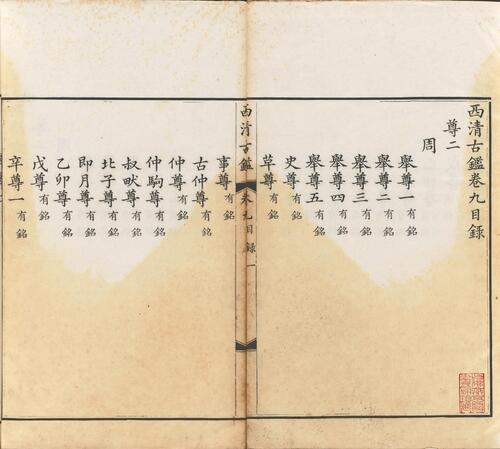 西清古鑑卷九目錄
尊二
周
舉尊一有銘
舉尊二有銘
舉尊三有銘
舉尊四有銘
舉尊五有銘
史尊有銘
草尊有銘
西清古鑑 卷九目錄 一
事尊有銘
古仲尊有銘
仲尊有銘
仲駒尊有銘
叔㽙尊有銘
北子尊有銘
即月尊有銘
乙卯尊有銘
戊尊有銘
辛尊一有銘